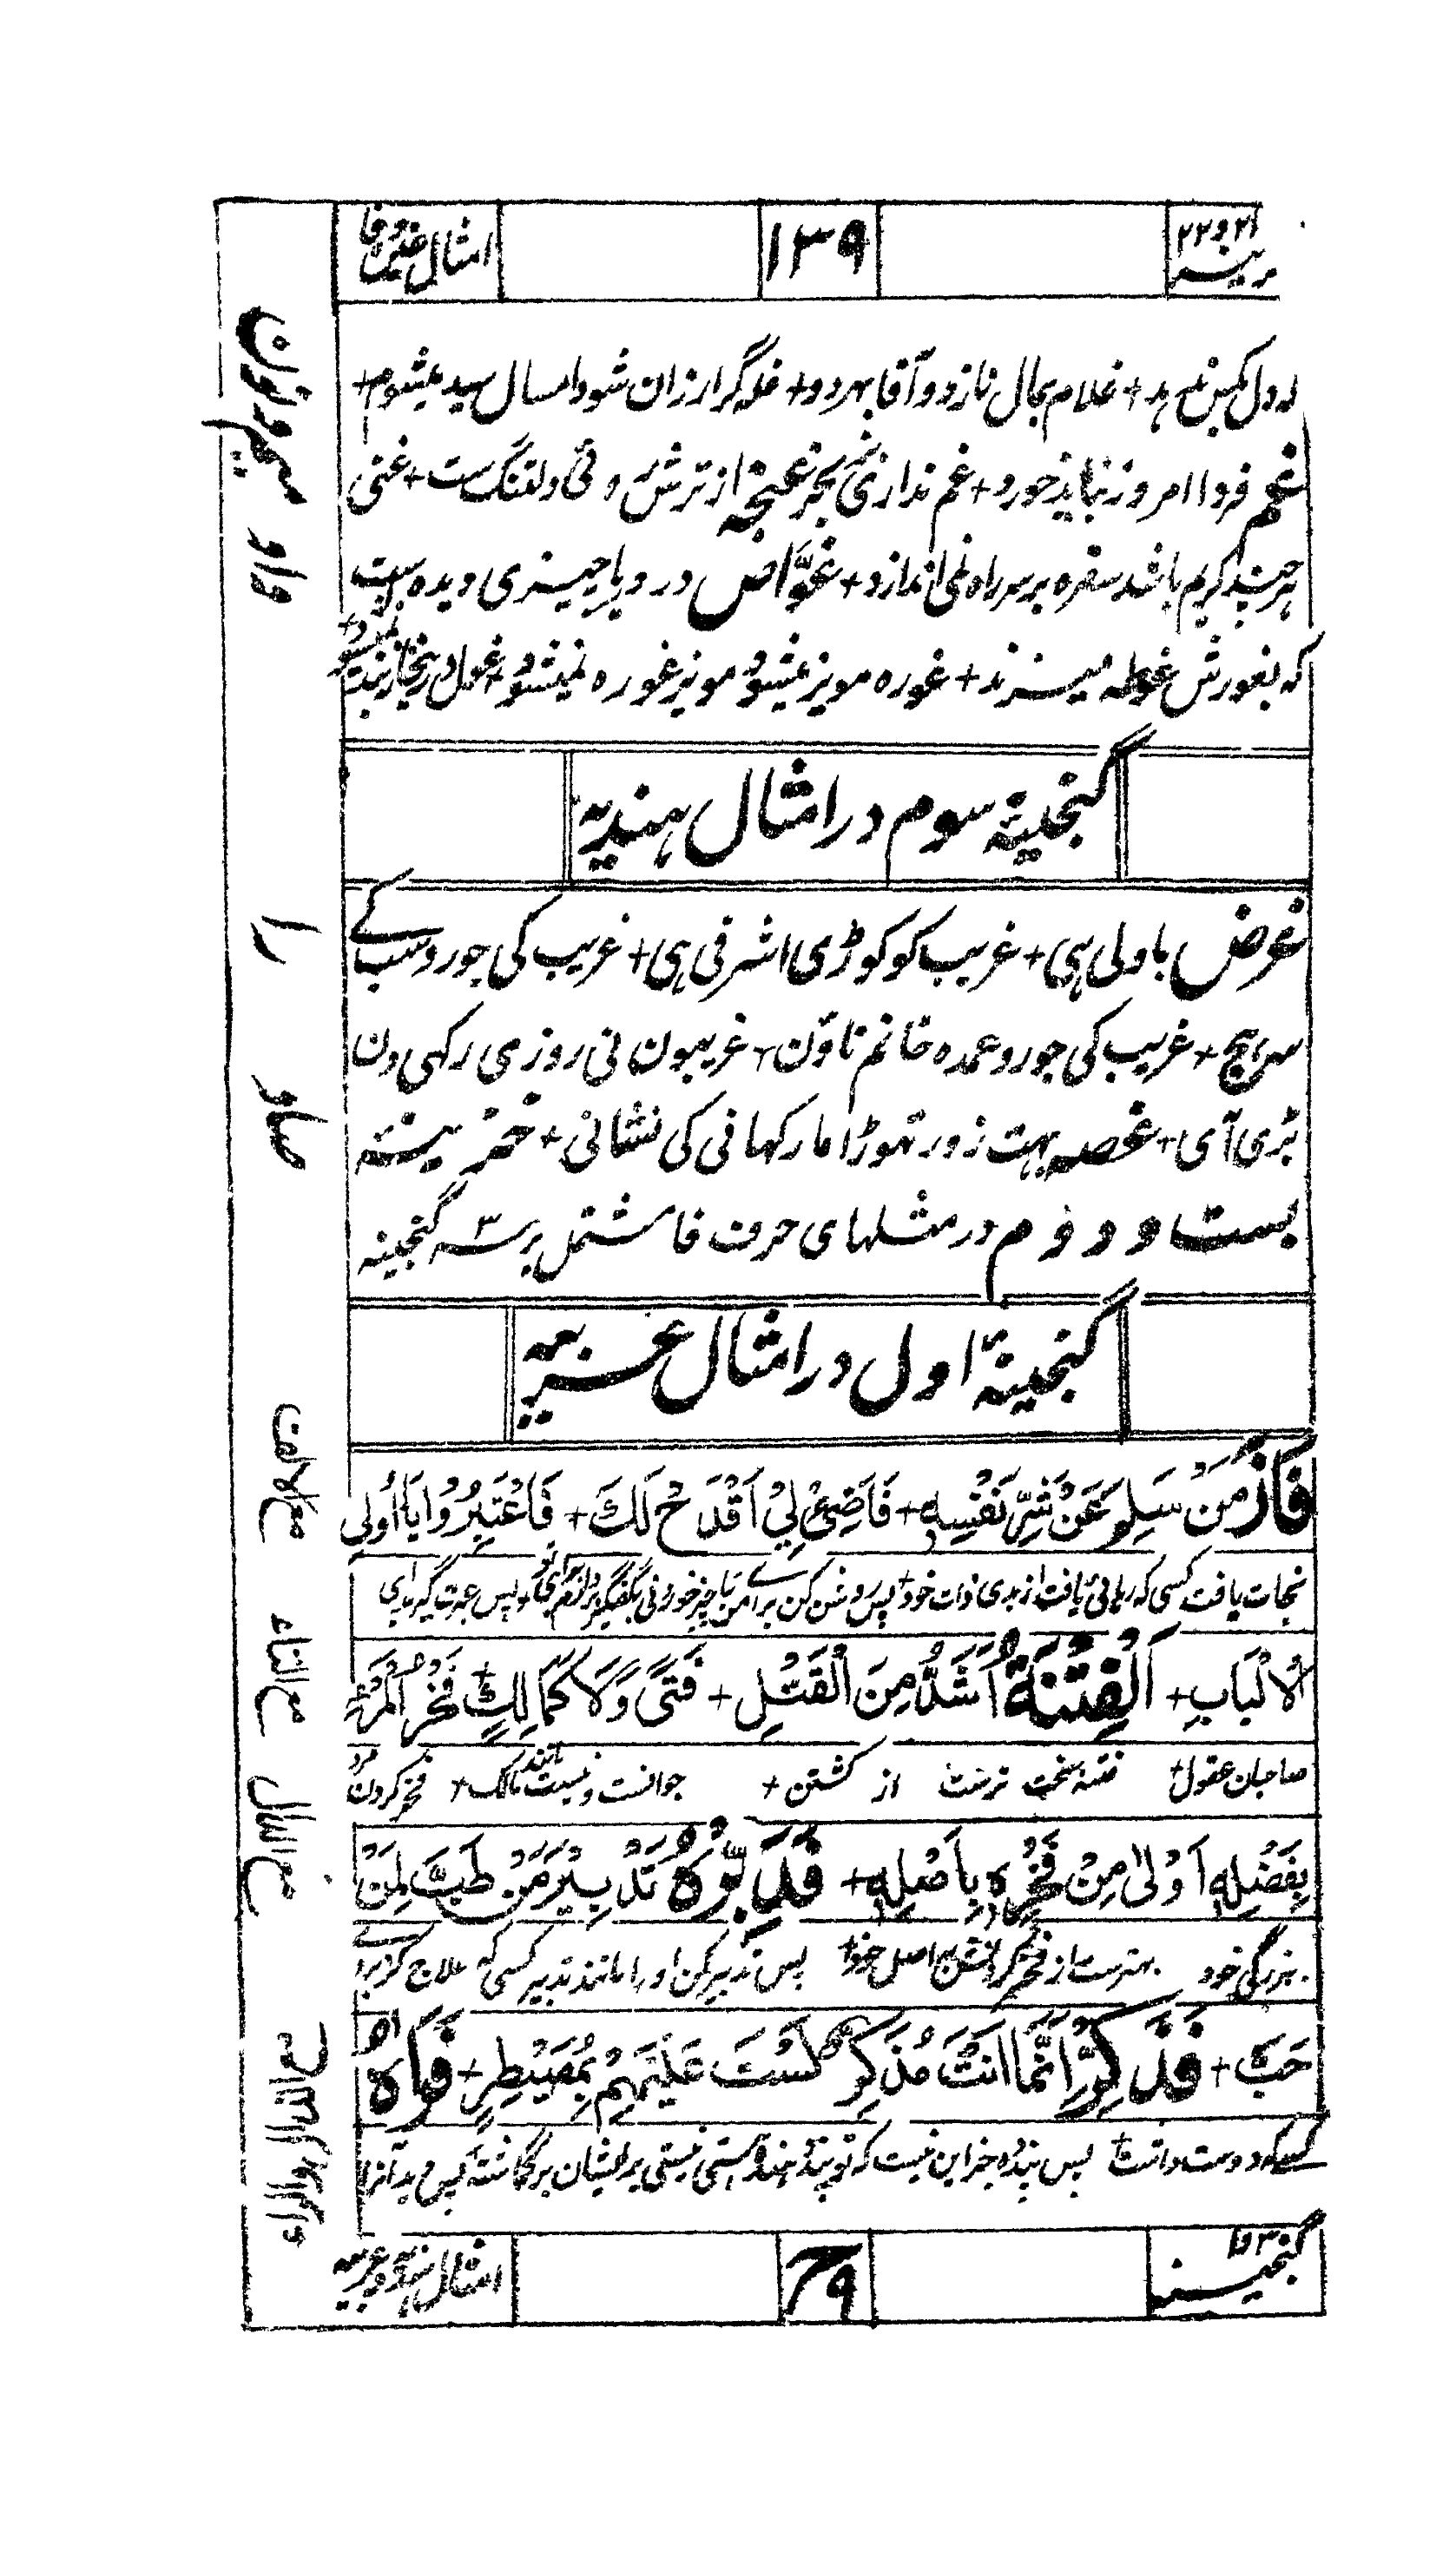 ۲۱ و ۲۲
۱۳۹
امثال غین و فا
غلام بمال نازد و آقا بهر دو + غله گر ارزان شود امسال سید میشوم +
غم فردا امروز نباید خورد + غم نداری بز بخر غنچه از ترش روئی دلتنگ ست + غنی
هرچند کریم باشد سفره بر سر راه نمی اندازد + غوّاص در دریا چیزی دیده است
که بغورش غوطه میزند + غوره مویز میشود مویز غوره نمیشود + غول
گنجینهٔ سوم در امثال هندیه
غرض باولی ہی + غریب کو کوڑی اشرفی ہی + غریب کی جورو سب کے
سرہج + غریب کی جورو عمدہ خانم ناؤن + غریبون نی روزی رکہی دن
بڑی آی + غصہ بہت زور تہوڑا مار کہانی کی نشانی + خزینۂ
بست و دوم در مثلهای حرف فا مشتمل بر سه گنجینه
گنجینهٔ اول در امثال عربیه
فَازَ مَنْ سَلِمَ عَنْ شَرِّ نَفْسِهِ + فَاَضِئْ لِيْ اَقْدَحْ لَكَ + فَاعْتَبِرُوْا يَا أُولِي
نجات یافت کسی که رهائی یافت از بدی ذات خود + پس روشن کن برای من + پس عبرت گیرید ای
الْاَلْبَابِ + اَلْفِتْنَةُ اَشَدُّ مِنَ الْقَتْلِ + فَتًى وَّلَا كَمَالِكٍ + فَخْرُ الْمَرْءِ
صاحبان عقول + فتنه سخت ترست از کشتن + جوانست و نیست مانند مالک + فخر کردن مرد
بِفَضْلِهِ اَوْلٰى مِنْ فَخْرِهِ بِاَصْلِهِ + فَدَبِّرْهُ تَدْبِيْرَ مَنْ طَبَّ لِمَنْ
بزرگی خود بهترست از فخر کردنش باصل خود + پس تدبیر کن او را مانند تدبیر کسی که علاج کرد برای
حَبَّ + فَذَكِّرْ اِنَّمَا اَنْتَ مُذَكِّرٌ لَسْتَ عَلَيْهِمْ بِمُصَيْطِرٍ + فَرَاٰهُ
کسیکه دوست داشت + پس پند ده جز این نیست که تو پند دهنده هستی نیستی بر ایشان برگماشته
گنجینه ۳ و ۱
امثال هندیه و عربیه
میم و نون
واو
را
صاد
مع الالف
مع التاء
مع الدال
مع الذال و الراء